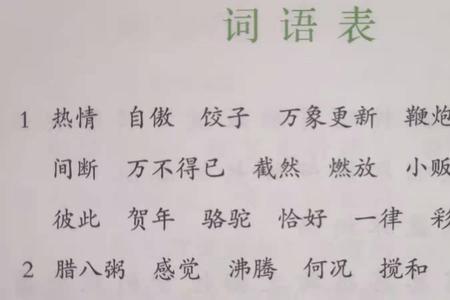 词语表
1 热情 自傲 饺子 万象更新 鞭炮
间断 万不得已 截然 燃放 小贩
彼此 贺年 骆驼 恰好 一律
2 腊八粥 感觉 沸腾 何况 搅和